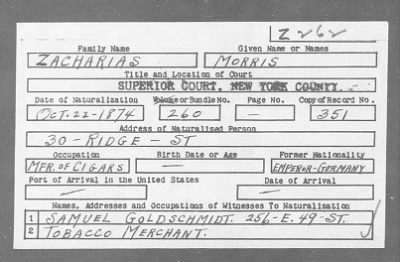 Z 262
Family Name Given Name or Names
ZACHARIAS MORRIS
Title and Location of Court
SUPERIOR COURT, NEW YORK COUNTY.
Date of Naturalization Volume or Bundle No. Page No. Copy of Record No.
OCT. 22-1874 260 — 351
Address of Naturalized Person
30-RIDGE-ST
Occupation Birth Date or Age Former Nationality
MFR. OF CIGARS — EMPEROR-GERMANY
Port of Arrival in the United States Date of Arrival
— —
Names, Addresses and Occupations of Witnesses To Naturalization
1 SAMUEL GOLDSCHMIDT. 256-E. 49-ST.
2 TOBACCO MERCHANT.